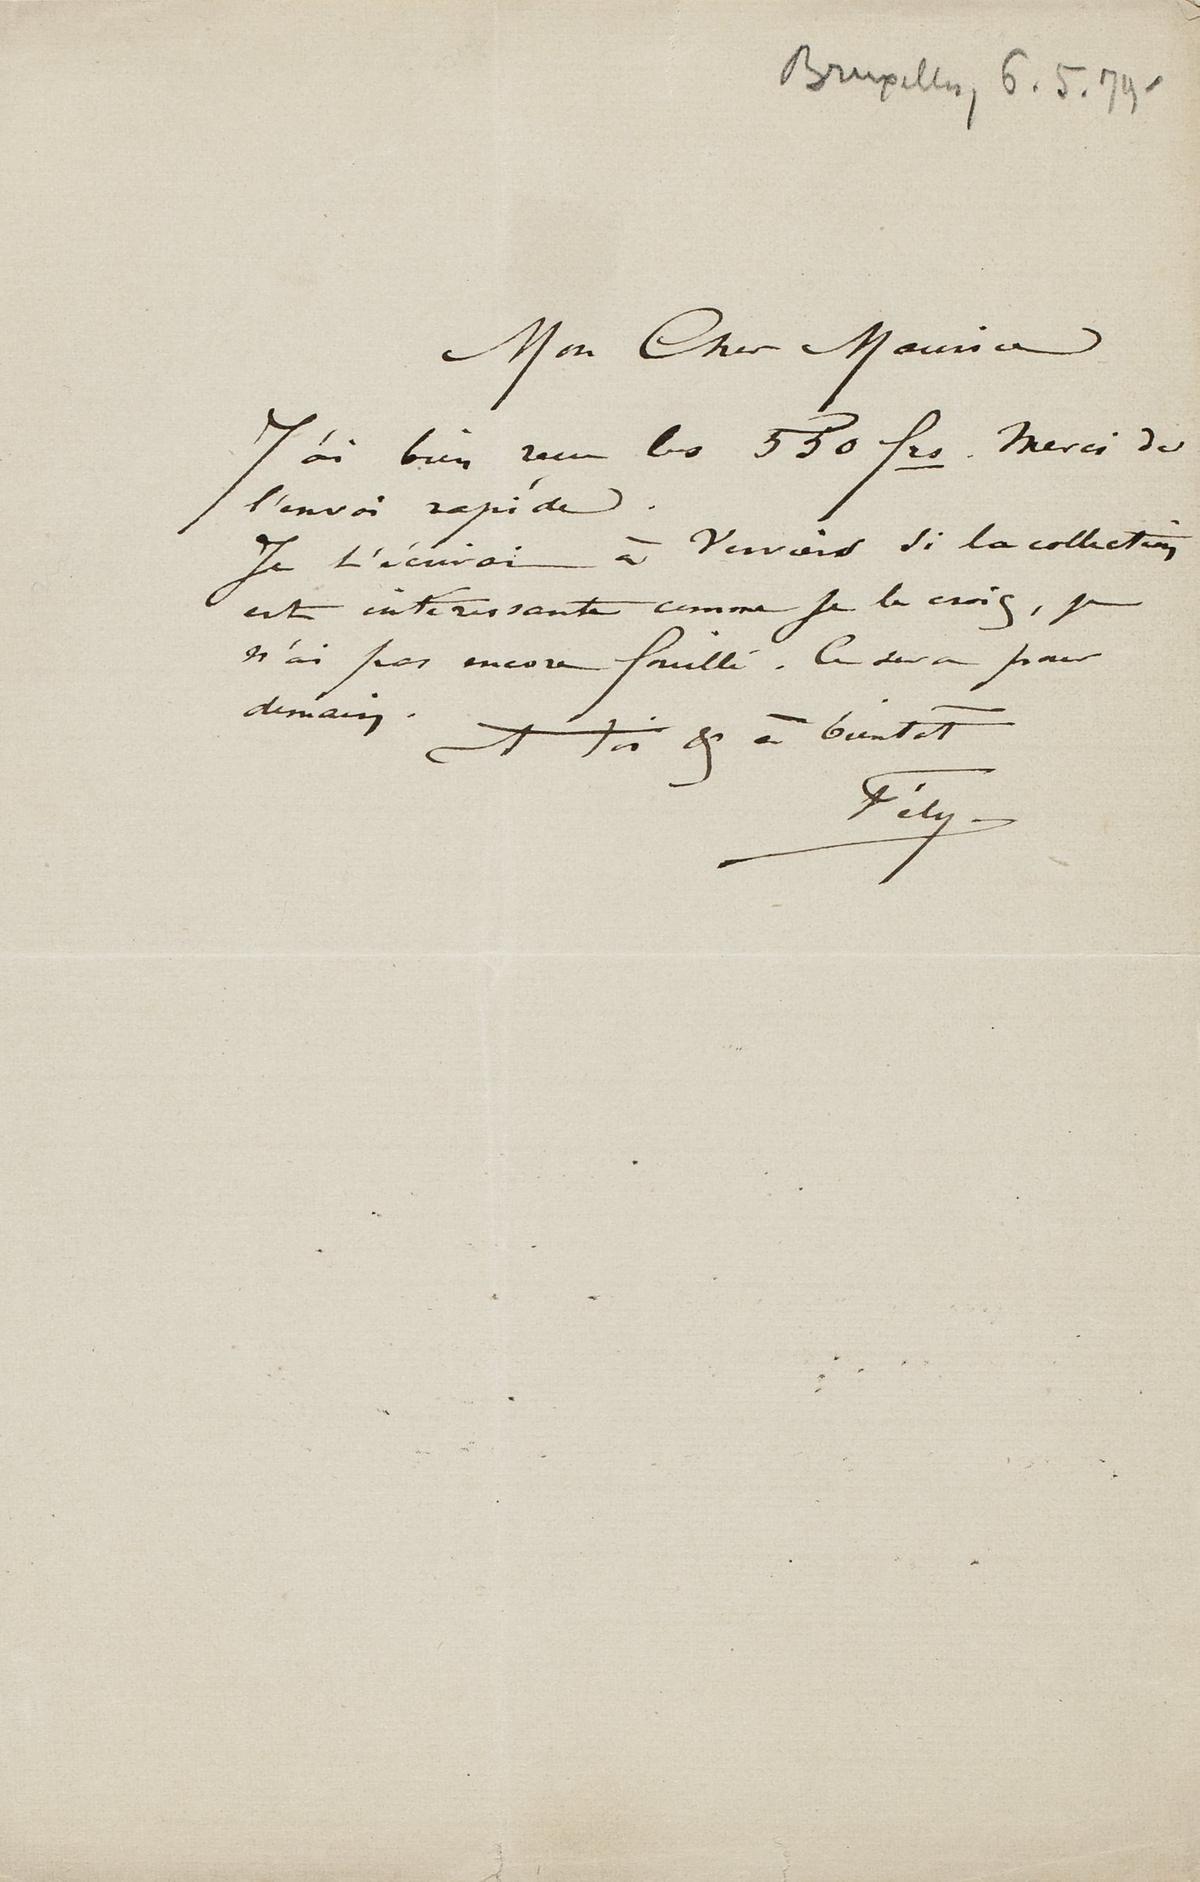 Bruxelles, 6.5.79
Mon Cher Maurice
J'ai bien reçu les 550 frs. Merci de
l'envoi rapide.
Je t'écrirai à Verviers si la collection
est intéressante comme je le crois, je
n'ai pas encore fouillé. Ce sera pour
demain.
A toi & à bientot
Fély